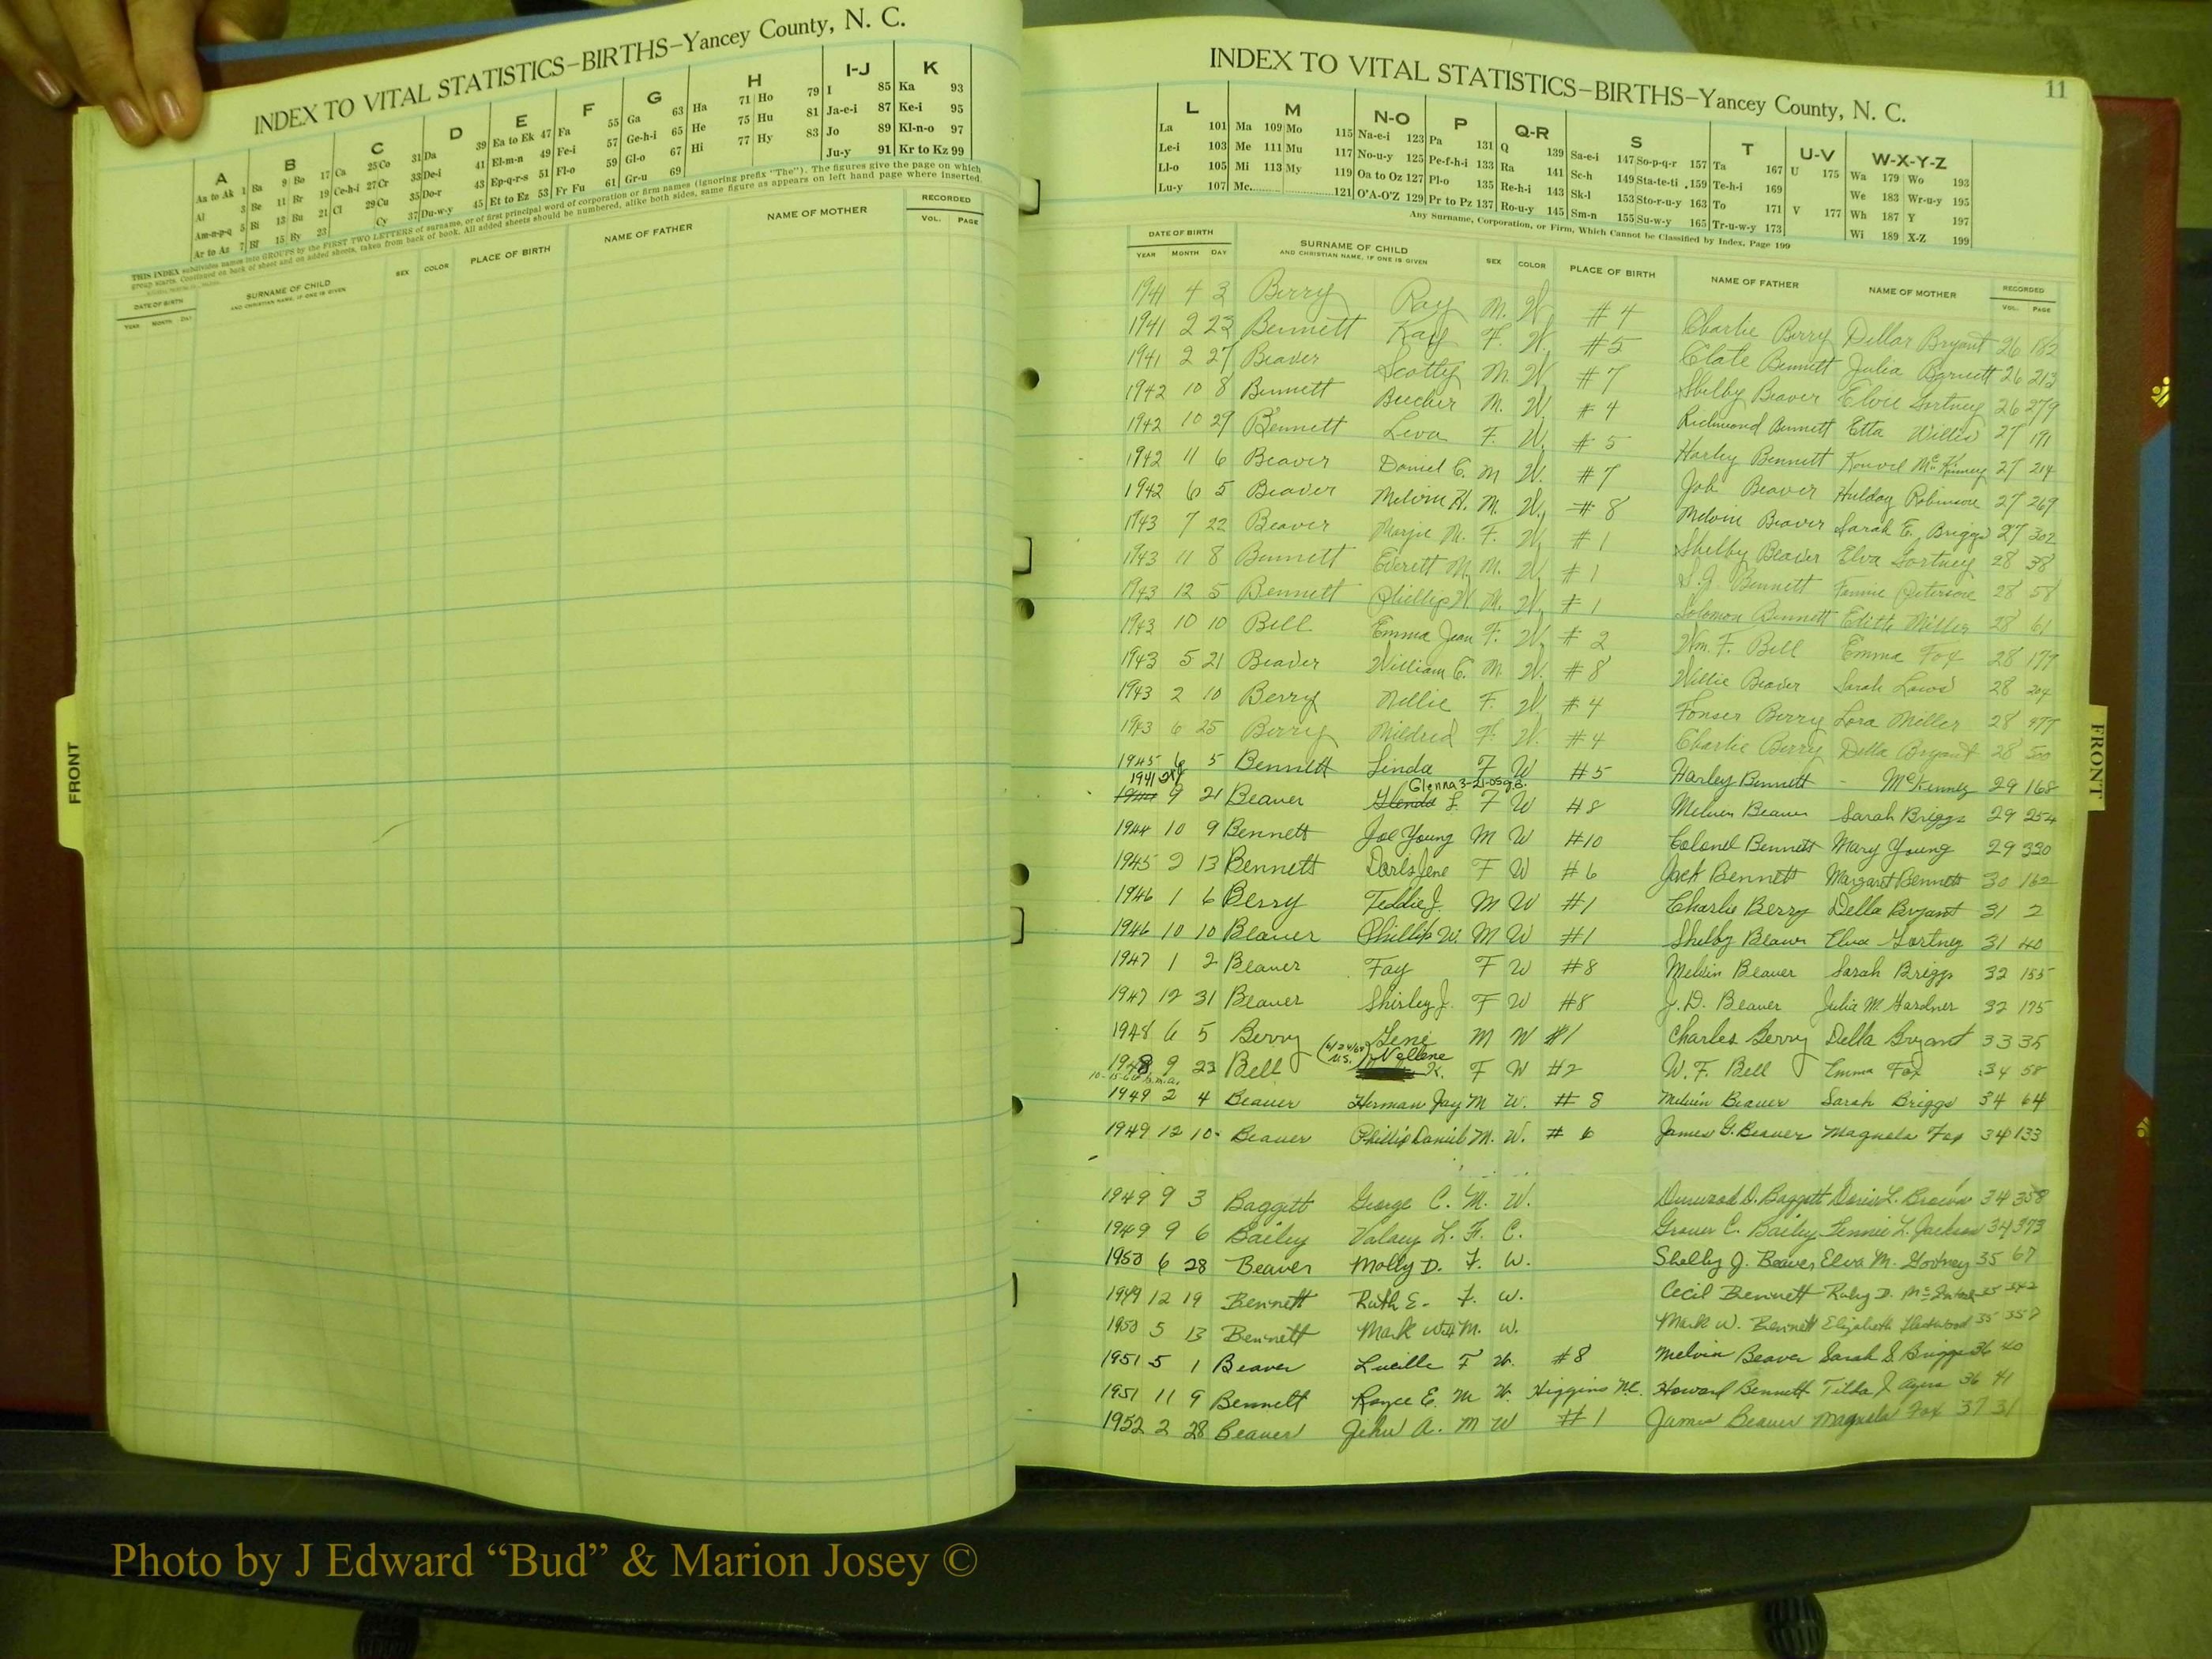 INDEX TO VITAL STATISTICS–BIRTHS–Yancey County, N. C.
A B C D E F G H I-J K
Aa to Ak 1 Ba 9 Bo 17 Ca 25 Co 31 Da 39 Ea to Ek 47 Fa 55 Ga 63 Ha 71 Ho 79 I 85 Ka 93
Al 3 Be 11 Br 19 Ce-h-i 27 Cr 33 De-i 41 El-m-n 49 Fe-i 57 Ge-h-i 65 He 75 Hu 81 Ja-e-i 87 Ke-i 95
Am-n-p-q 5 Bi 13 Bu 21 Cl 29 Cu 35 Do-r 43 Ep-q-r-s 51 Fl-o 59 Gl-o 67 Hi 77 Hy 83 Jo 89 Kl-n-o 97
Ar to Az 7 Bl 15 By 23 Cy 37 Du-w-y 45 Et to Ez 53 Fr Fu 61 Gr-u 69 Ju-y 91 Kr to Kz 99
THIS INDEX subdivides names into GROUPS by the FIRST TWO LETTERS of surname, or of first principal word of corporation or firm names (ignoring prefix "The"). The figures give the page on which
group starts. Continued on back of sheet and on added sheets, taken from back of book. All added sheets should be numbered, alike both sides, same figure as appears on left hand page where inserted.
DATE OF BIRTH SURNAME OF CHILD SEX COLOR PLACE OF BIRTH NAME OF FATHER NAME OF MOTHER RECORDED
YEAR MONTH DAY AND CHRISTIAN NAME, IF ONE IS GIVEN VOL. PAGE
FRONT
11
INDEX TO VITAL STATISTICS–BIRTHS–Yancey County, N. C.
L M N-O P Q-R S T U-V W-X-Y-Z
La 101 Ma 109 Mo 115 Na-e-i 123 Pa 131 Q 139 Sa-e-i 147 So-p-q-r 157 Ta 167 U 175 Wa 179 Wo 193
Le-i 103 Me 111 Mu 117 No-u-y 125 Pe-f-h-i 133 Ra 141 Sc-h 149 Sta-te-ti 159 Te-h-i 169 We 183 Wr-u-y 195
Ll-o 105 Mi 113 My 119 Oa to Oz 127 Pl-o 135 Re-h-i 143 Sk-l 153 Sto-r-u-y 163 To 171 V 177 Wh 187 Y 197
Lu-y 107 Mc 121 O'A-O'Z 129 Pr to Pz 137 Ro-u-y 145 Sm-n 155 Su-w-y 165 Tr-u-w-y 173 Wi 189 X-Z 199
Any Surname, Corporation, or Firm, Which Cannot be Classified by Index, Page 199
DATE OF BIRTH SURNAME OF CHILD SEX COLOR PLACE OF BIRTH NAME OF FATHER NAME OF MOTHER RECORDED
YEAR MONTH DAY AND CHRISTIAN NAME, IF ONE IS GIVEN VOL. PAGE
1941 4 3 Berry Ray M. W. #4 Charlie Berry Dellar Bryant 26 182
1941 2 23 Bennett Kay F. W. #5 Clate Bennett Julia Barnett 26 213
1941 2 27 Beaver Scotty M. W. #7 Shelby Beaver Elvie Gortney 26 279
1942 10 8 Bennett Beecher M. W. #4 Richmond Bennett Etta Willis 27 191
1942 10 29 Bennett Leva F. W. #5 Harley Bennett McKinney 27 214
1942 11 6 Beaver Daniel C. M W. #7 Job Beaver Hulday Robinson 27 269
1942 6 5 Beaver Melvin H. M. W. #8 Melvin Beaver Sarah E. Briggs 27 302
1943 7 22 Beaver Marjie M. F. W. #1 Shelby Beaver Elva Gortney 28 38
1943 11 8 Bennett Everett M. M. W. #1 S.J. Bennett Fannie Peterson 28 58
1943 12 5 Bennett Phillip W. M. W. #1 Solomon Bennett Edith Miller 28 61
1943 10 10 Bell Emma Jean F. W. #2 Wm. F. Bell Emma Fox 28 177
1943 5 21 Beaver William C. M. W. #8 Willie Beaver Sarah Laws 28 204
1943 2 10 Berry Nellie F. W. #4 Fonser Berry Lora Miller 28 477
1943 6 25 Berry Mildred F. W. #4 Charlie Berry Della Bryant 28 500
1945 6 5 Bennett Linda F W #5 Harley Bennett - McKinney 29 168
1941 Glenna 3-21-05
9 21 Beaver Glenda L. F W #8 Melven Beaver Sarah Briggs 29 254
1944 10 9 Bennett Joe Young M W #10 Colonel Bennett Mary Young 29 330
1945 2 13 Bennett Daris Jene F W #6 Jack Bennett Margaret Bennett 30 162
1946 1 6 Berry Teddie J. M W #1 Charlie Berry Della Bryant 31 2
1946 10 10 Beaver Phillip W. M W #1 Shelby Beaver Elva Gortney 31 40
1947 1 2 Beaver Fay F W #8 Melvin Beaver Sarah Briggs 32 155
1947 12 31 Beaver Shirley J. F W #8 J. D. Beaver Julia M. Gardner 32 175
1948 6 5 Berry Gene M W #1 Charles Berry Della Bryant 33 35
1948 9 23 Bell Nellene K. F W #2 W. F. Bell Emma Fox 34 58
1949 2 4 Beaver Herman Jay M W. #8 Melvin Beaver Sarah Briggs 34 64
1949 12 10 Beaver Phillip Daniel M. W. #6 James G. Beaver Magnola Fox 34 133
1949 9 3 Baggett George C. M. W. Durwood D. Baggett Doris L. Brown 34 358
1949 9 6 Bailey L. F. C. Grover C. Bailey Fennie L. Jackson 34 373
1950 6 28 Beaver Molly D. F. W. Shelby J. Beaver Elva M. Gortney 35 67
1949 12 19 Bennett Ruth E. F. W. Cecil Bennett Ruby D. 35 342
1950 5 13 Bennett Mark M. W. Mark W. Bennett Elizabeth Fleetwood 35 357
1951 5 1 Beaver Lucille F W. #8 Melvin Beaver Sarah S. Briggs 36 40
1951 11 9 Bennett Royce E. M W. Higgins N.C. Howard Bennett Tilda J Ayers 36 41
1952 2 28 Beaver John A. M W #1 James Beaver Magnola Fox 37 31
FRONT
Photo by J Edward “Bud” & Marion Josey ©